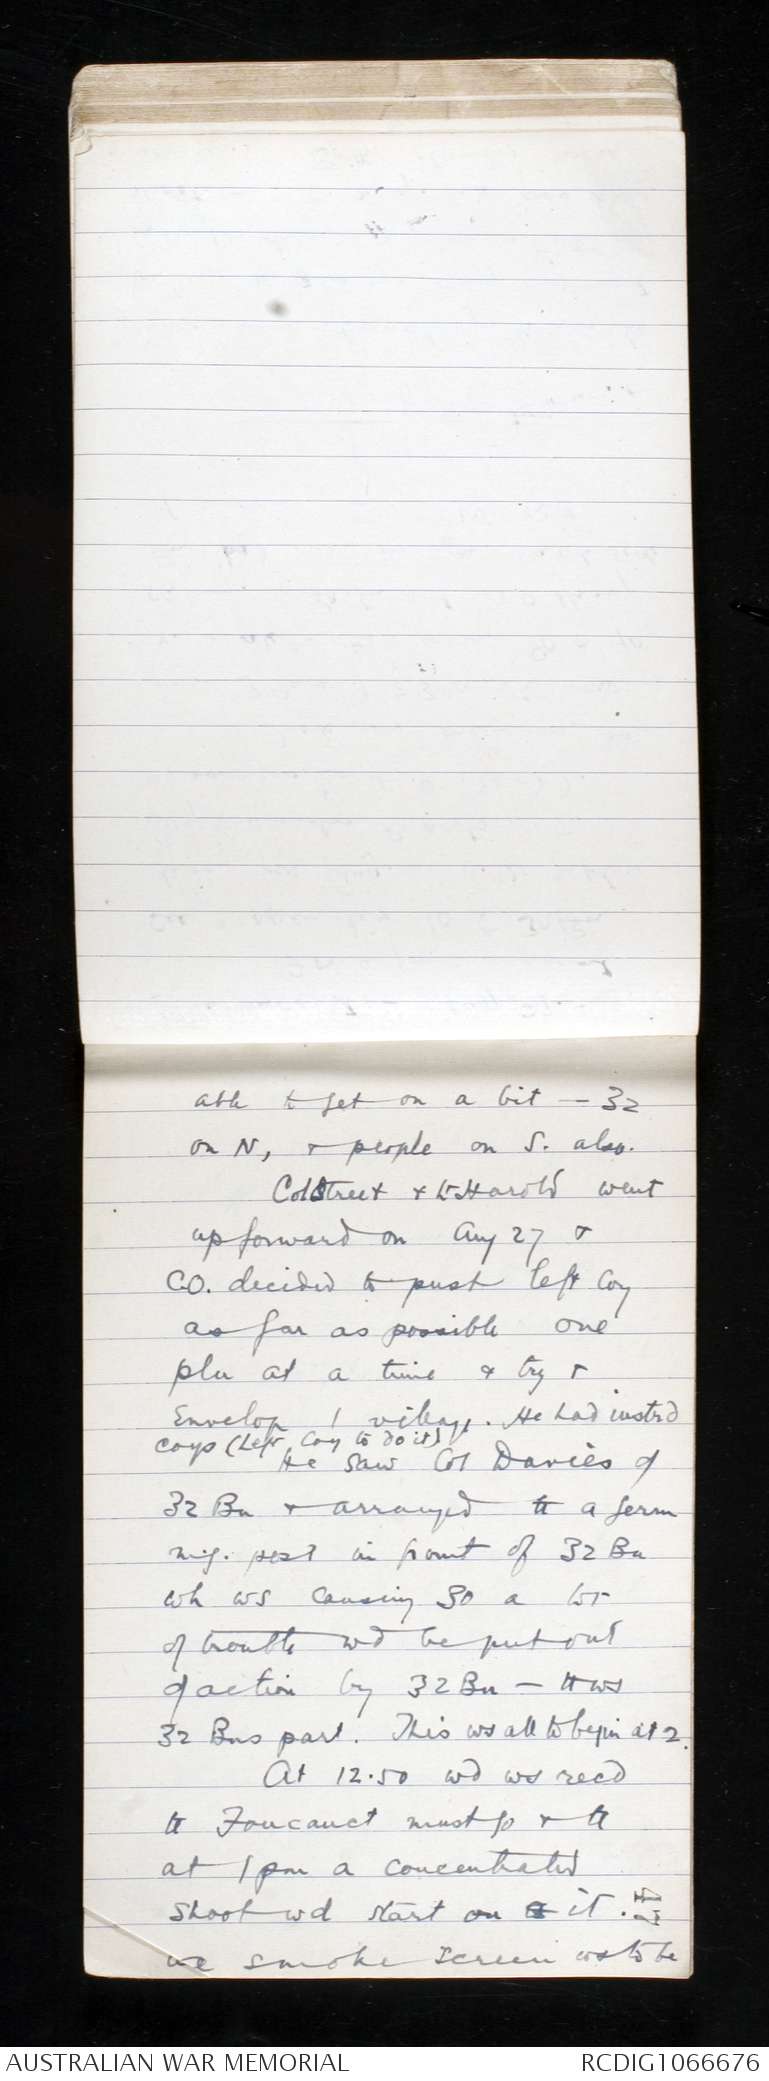 able to get on a bit - 32
on N, & people on S. also.
Col Street & Harold went
up forward on Aug 27 &
C.O. decided to push left Coy
as far as possible one
pln at a time & try &
Envelop / village. He had instrd
coys (Left Coy to do it)
He saw Col Davies of
32 Bn & arranged tt a Germ
m.g. post in front of 32 Bn
wh ws causing so a lot
of trouble wd be put out
of action by 32 Bn - tt ws
32 Bns part. This ws all to begin at 2.
At 12.50 wd ws recd
tt Foucauct must go & tt
at 1 pm a concentrated
shoot wd start on it.
we smoke screen ws to be
AUSTRALIAN WAR MEMORIAL
RCDIG1066676